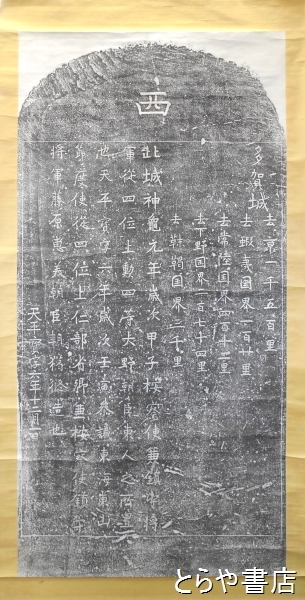 西
多賀城
去京一千五百里
去蝦夷国界一百廿里
去常陸国界四百十二里
去下野国界二百七十四里
去靺鞨国界三千里
此城神龜元年歲次甲子按察使兼鎮守將
軍從四位上勳四等大野朝臣東人之所置
也天平寶字六年歲次壬寅參議東海東山
節度使從四位上仁部省卿兼按察使鎮守
將軍藤原惠美朝臣朝獦修造也
天平寶字六年十二月一日
とらや書店